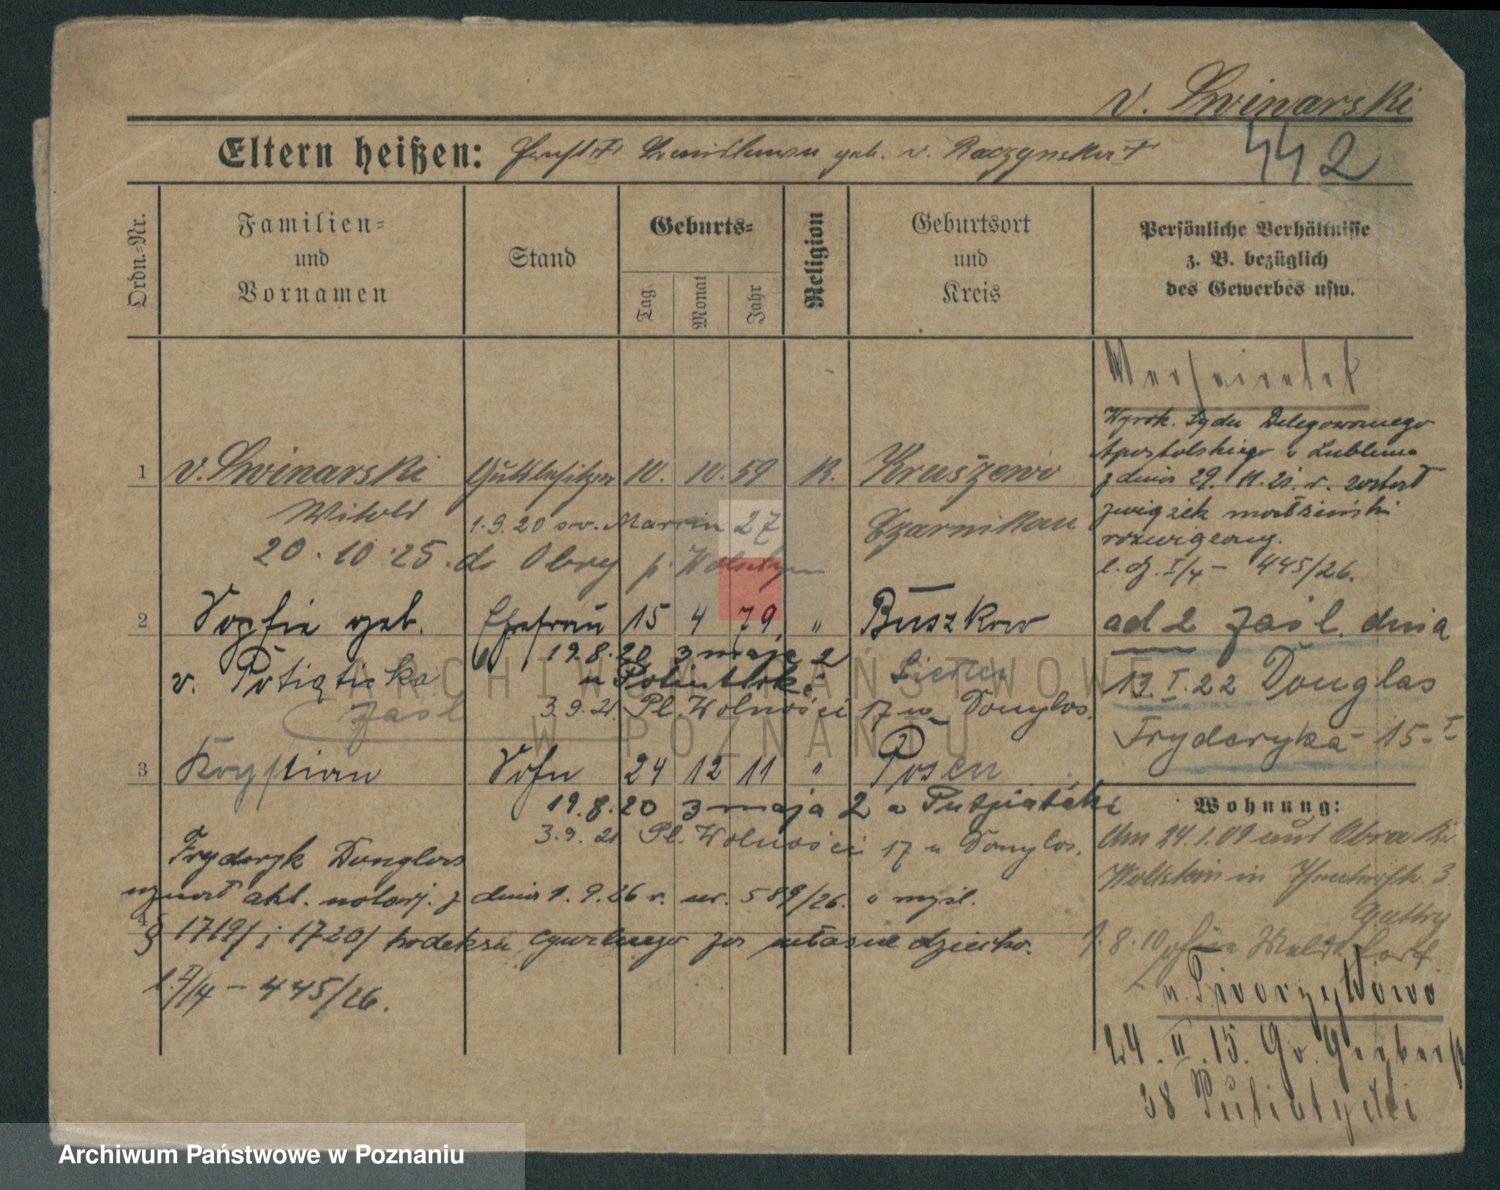 v. Swinarski
442
Eltern heißen: geb. v. Raczynska †
Ordn.-Nr.
Familien-
und
Vornamen
Stand
Geburts-
Tag
Monat
Jahr
Religion
Geburtsort
und
Kreis
Persönliche Verhältnisse
z. B. bezüglich
des Gewerbes usw.
Verheiratet
Wyrok. Sądu Delegowanego
Apostolskiego w Lublinie
z dnia 29. 11. 25. r. został
związek małżeński
rozwiązany.
l. dz. I/4 - 445/26.
1 v. Swinarski Gutsbesitzer 10. 10. 59 K. Kruszewo
Witold 1.9.20 św. Marcin 27 Czarnikau
20.10.25. do Obry p. Wolsztyn
2 Sophie geb. Ehefrau 15 4 79 " Buszkow
19.8.20 3 maja 2
v. Potiatycka u
zaśl. 3.9.21. Pl. Wolności 17 u Douglas.
ad 2 zaśl. dnia
13.I.22 Douglas
Fryderyka - 15-I
3 Krystian Sohn 24 12 11 " Posen
19.8.20 3 maja 2 u
3.9.21 Pl. Wolności 17 u Douglas.
Fryderyk Douglas
uznał akt. notarj. z dnia 1.9.26 r. nr. 589/26. w myśl.
4
§ 1719/ i 1720/ kodeksu cywilnego za własne dziecko.
l. I/4 - 445/26.
Wohnung:
Am 24.1.09 auf Obra Kr.
Wollstein in 3
8.10
24.II.15. Gr. Gerberst
38
ARCHIWUM PAŃSTWOWE
W POZNANIU
Archiwum Państwowe w Poznaniu